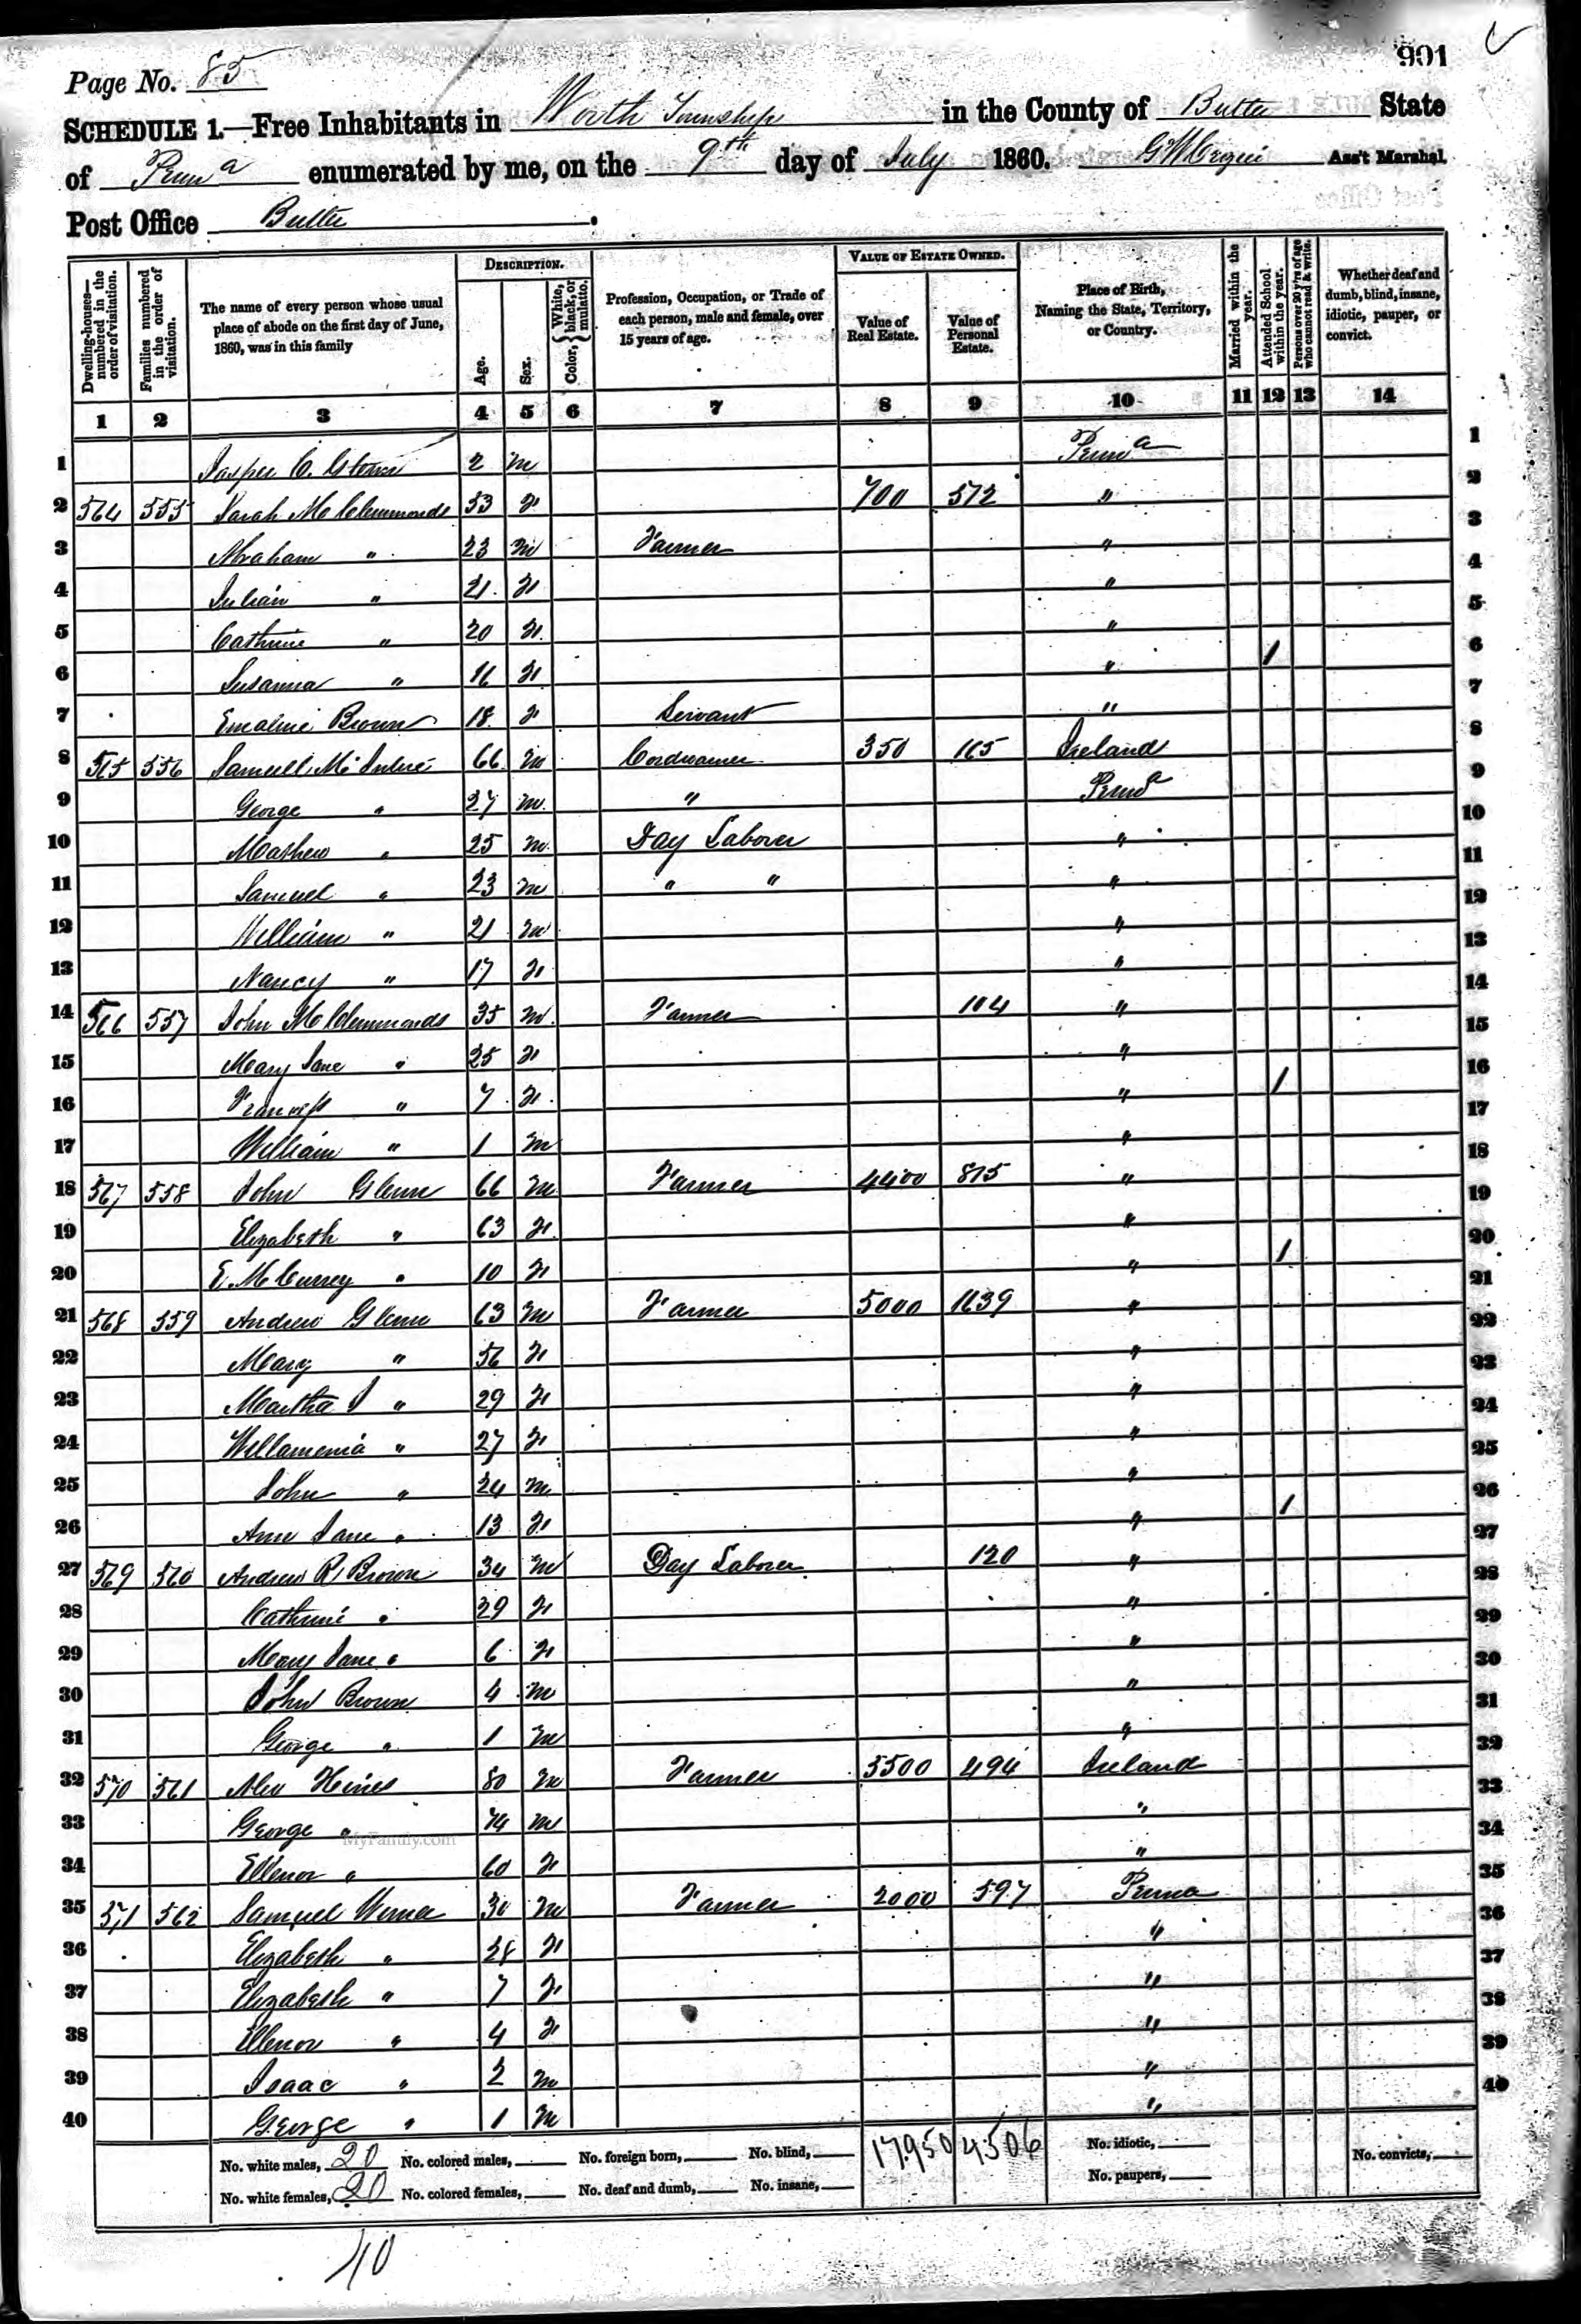 901
Page No. 85
SCHEDULE 1.—Free Inhabitants in Worth Township in the County of Butler State
of Penna enumerated by me, on the 9th day of July 1860. Ass't Marshal
Post Office Butler.
Dwelling-houses—numbered in the order of visitation.
Families numbered in the order of visitation.
The name of every person whose usual place of abode on the first day of June, 1860, was in this family
DESCRIPTION.
Age.
Sex.
Color, { White, black, or mulatto.
Profession, Occupation, or Trade of each person, male and female, over 15 years of age.
VALUE OF ESTATE OWNED.
Value of Real Estate.
Value of Personal Estate.
Place of Birth, Naming the State, Territory, or Country.
Married within the year.
Attended School within the year.
Persons over 20 y'rs of age who cannot read & write.
Whether deaf and dumb, blind, insane, idiotic, pauper, or convict.
1 2 3 4 5 6 7 8 9 10 11 12 13 14
1 Jasper C. Glenn 2 m Penna 1
2 564 555 Sarah McClemmonds 53 f 700 572 " 2
3 Abraham " 23 m Farmer " 3
4 Julian " 21 f " 4
5 Cathrine " 20 f " 5
6 Susanna " f " / 6
7 Emaline Brown 18 f Servant " 7
8 565 556 Samuell 66 m Cordwainer 350 165 Ireland 8
9 George " 27 m " Penna 9
10 Mathew " 25 m Day Laborer " 10
11 Samuel " 23 m " " " 11
12 William " 21 m " 12
13 Nancy " 17 f " 13
14 566 557 John McClemmonds 35 m Farmer 104 " 14
15 Mary Jane " 25 f " 15
16 " 7 f " / 16
17 William " 1 m " 17
18 567 558 John Glenn 66 m Farmer 4400 815 " 18
19 Elizabeth " 63 f " 19
20 E. McCurrey " 10 f " / 20
21 568 559 Andrew Glenn 63 m Farmer 5000 1639 " 21
22 Mary " 56 f " 22
23 Martha J " 29 f " 23
24 Willamenia " 27 f " 24
25 John " 24 m " 25
26 Ann Jane " 13 f " / 26
27 569 560 Andrew R. Brown 34 m Day Laborer 120 " 27
28 Cathrine " 29 f " 28
29 Mary Jane " 6 f " 29
30 John Brown 4 m " 30
31 George " 1 m " 31
32 570 561 Alex Hines 80 m Farmer 3500 494 Ireland 32
33 George " 74 m " 33
34 Ellenor " 60 f " 34
35 571 562 Samuel 30 m Farmer 2000 597 Penna 35
36 Elizabeth " 28 f " 36
37 Elizabeth " 7 f " 37
38 Ellenor " 4 f " 38
39 Isaac " 2 m " 39
40 George " 1 m " 40
MyFamily.com
No. white males, 20 No. colored males, No. foreign born, No. blind, 17.950 4506 No. idiotic, No. convicts,
No. white females, 20 No. colored females, No. deaf and dumb, No. insane, No. paupers,
40